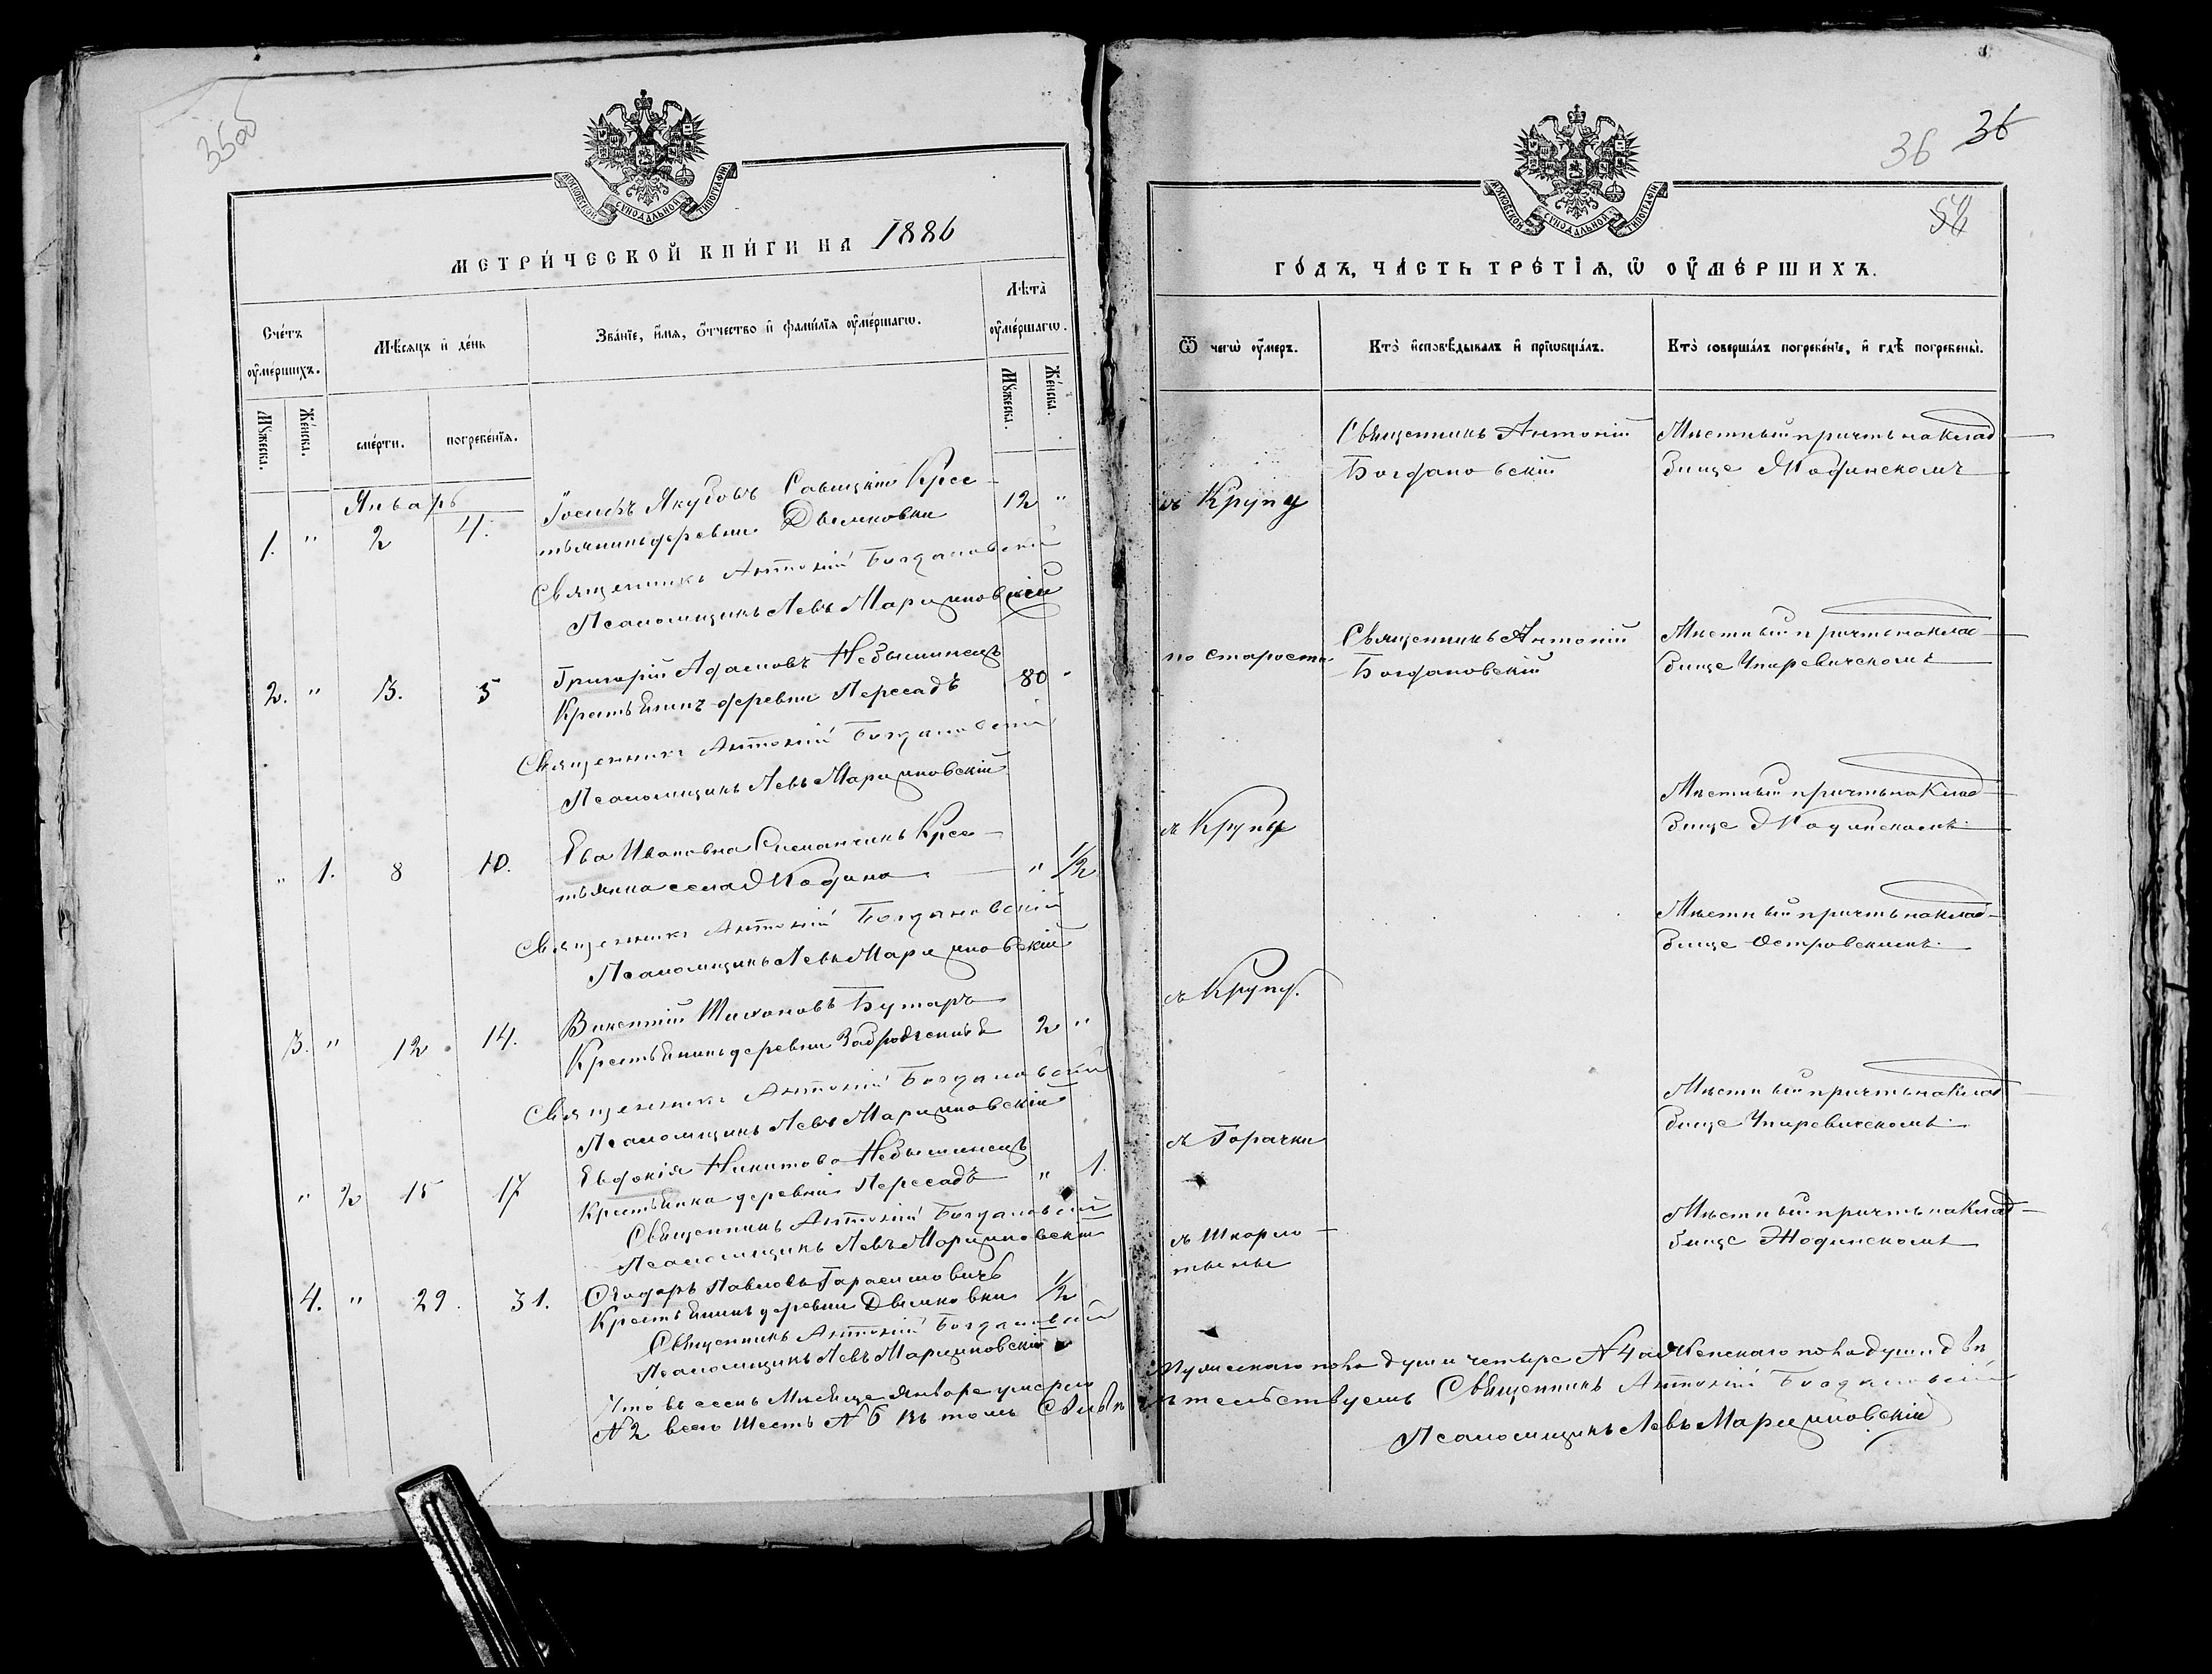 35об
МОСКОВСКОЙ СѴНОДАЛЬНОЙ ТИПОГРАФІИ
МЕТРИ́ЧЕСКОЙ КНИ́ГИ НА 1886
Сче́тъ ᲂу҆ме́ршихъ.
Мѣ́сяцъ и҆ де́нь
Зва́нїе, и҆́мя, ѻ҆́тчество и҆ фами́лїя ᲂу҆ме́ршагѡ.
Лѣ́та ᲂу҆ме́ршагѡ.
Мꙋ́жеска.
Же́нска.
сме́рти.
погребе́нїя.
Мꙋ́жеска.
Же́нска.
Январь
1. " 2 4. Іосифъ Якубовъ Савицкій Крес-
тьянинъ деревни Дымковки 12 "
Священникъ Антоній Богдановскій
Псаломщикъ Левъ Марциновскій
2. " 3. 5 Григорій Адамовъ Небышинецъ
Крестьянинъ деревни Пересадъ 80 "
Священникъ Антоній Богдановскій
Псаломщикъ Левъ Марциновскій
" 1. 8 10. Ева Иванова Симанчикъ Крес-
тьянка села Жодина " 1/2
Священникъ Антоній Богдановскій
Псаломщикъ Левъ Марциновскій
3. " 12. 14. Викентій Тихоновъ Бутаръ
Крестьянинъ деревни 2 "
Священникъ Антоній Богдановскій
Псаломщикъ Левъ Марциновскій
" 2 15 17 Евдокія Никитова Небышинецъ
Крестьянка деревни Пересадъ " 1.
Священникъ Антоній Богдановскій
Псаломщикъ Левъ Марциновскій
4. " 29. 31. Ѳеодоръ Павловъ Гарасимовичъ
Крестьянинъ деревни Дымковки 1/2
Священникъ Антоній Богдановскій
Псаломщикъ Левъ Марциновскій
Что въ семъ Мѣсяце Январе умерло
N 2 всего Шесть N 6 въ томъ Свидѣ
36 36
54
МОСКОВСКОЙ СѴНОДАЛЬНОЙ ТИПОГРАФІИ
ГО́ДЪ, ЧА́СТЬ ТРЕ́ТІѦ, Ѡ҆ ОУ҆МЕ́РШИХЪ.
Ѿ чегѡ̀ ᲂу҆́меръ.
Кто̀ и҆сповѣ́дывалъ и҆ прїѡбща́лъ.
Кто̀ соверша́лъ погребе́нїе, и҆ гдѣ̀ погребены̀.
Священникъ Антоній Мѣстный причтъ на клад-
Богдановскій бище Жодинскомъ
ъ Крупу
по старости Священникъ Антоній Мѣстный причтъ на клад-
Богдановскій бище Упиревичскомъ
Мѣстный причтъ на Клад-
ъ Крупу бище Жодинскомъ.
Мѣстный причтъ на клад-
бище Островскимъ.
ъ Крупу.
Мѣстный причтъ на клад-
бище Упиревичскомъ.
ъ Горячки
Мѣстный причтъ на Клад-
ъ Шкарло- бище Жодинскомъ
тыны
Мужескаго пола души четыре N 4 а Женскаго пола души двѣ
тельствуемъ Священникъ Антоній Богдановскій
Псаломщикъ Левъ Марциновскій